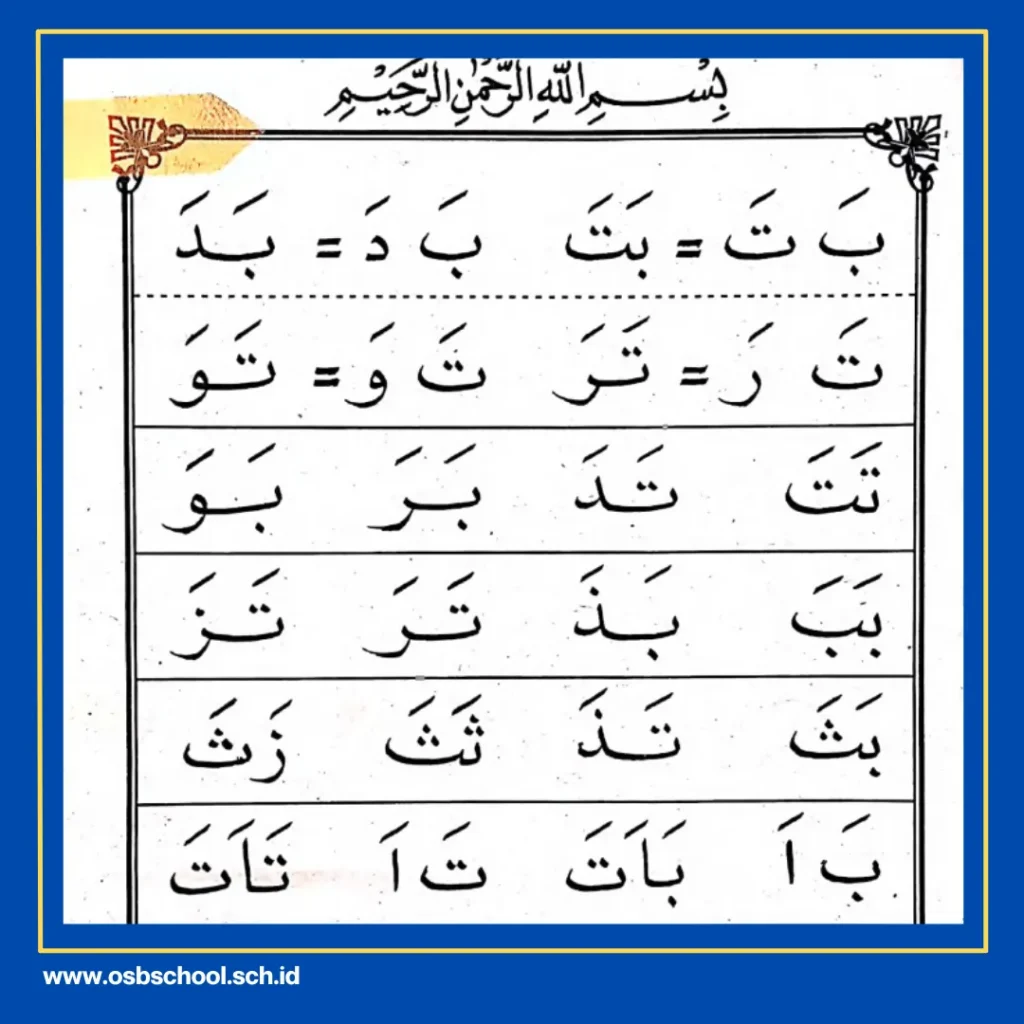 بِسْمِ اللّٰهِ الرَّحْمٰنِ الرَّحِيْمِ
بَ تَ = بَتَ بَ دَ = بَدَ
تَ رَ = تَرَ تَ وَ = تَوَ
تَتَ تَدَ بَرَ بَوَ
بَبَ بَذَ تَرَ تَزَ
بَثَ تَذَ ثَثَ زَثَ
بَ اَ بَاَتَ تَ اَ تَاَتَ
www.osbschool.sch.id